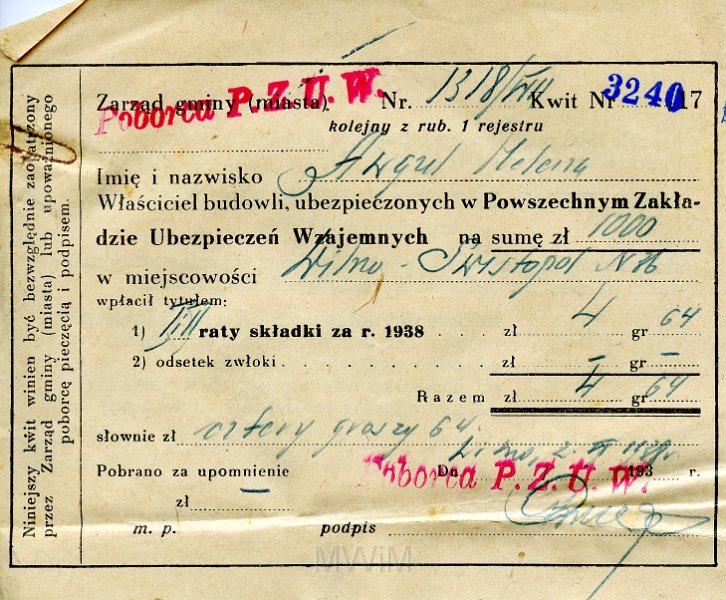 Zarząd gminy (miasta) Nr. 1318/VIII Kwit Nr 3240 17
Poborca P. Z. U. W.
kolejny z rub. 1 rejestru
Imię i nazwisko Helena
Właściciel budowli, ubezpieczonych w Powszechnym Zakła-
dzie Ubezpieczeń Wzajemnych na sumę zł 1000
w miejscowości Wilno - N
wpłacił tytułem:
1) raty składki za r. 1938 zł 4 gr 64
2) odsetek zwłoki zł – gr –
Razem zł 4 gr 64
słownie zł cztery groszy 64.
Pobrano za upomnienie Dn 193 r.
Poborca P. Z. U. W.
zł —
m. p. podpis
Niniejszy kwit winien być bezwzględnie zaopatrzony
przez Zarząd gminy (miasta) lub upoważnionego
poborcę pieczęcią i podpisem.
MWiM